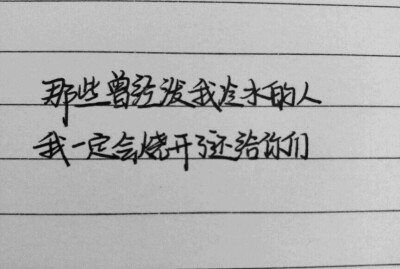 那些曾经泼我冷水的人
我一定会烧开了还给你们